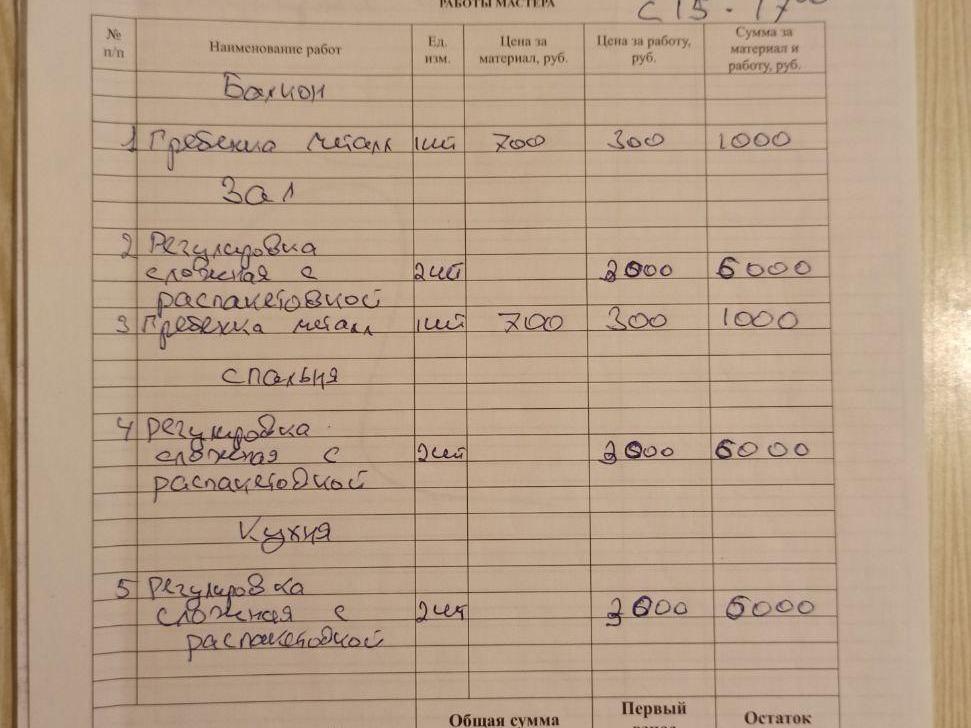 РАБОТЫ МАСТЕРА
с 15 - 17
№ п/п Наименование работ Ед. изм. Цена за материал, руб. Цена за работу, руб. Сумма за материал и работу, руб.
Балкон
1 Гребенка металл 1шт 700 300 1000
Зал
2 Регулировка
сложная с 2шт 3000 6000
распакетовкой
3 Гребенка металл 1шт 700 300 1000
спальня
4 Регулировка
сложная с 2шт 3000 6000
распакетовкой
Кухня
5 Регулировка
сложная с 2шт 3000 6000
распакетовкой
Общая сумма Первый Остаток